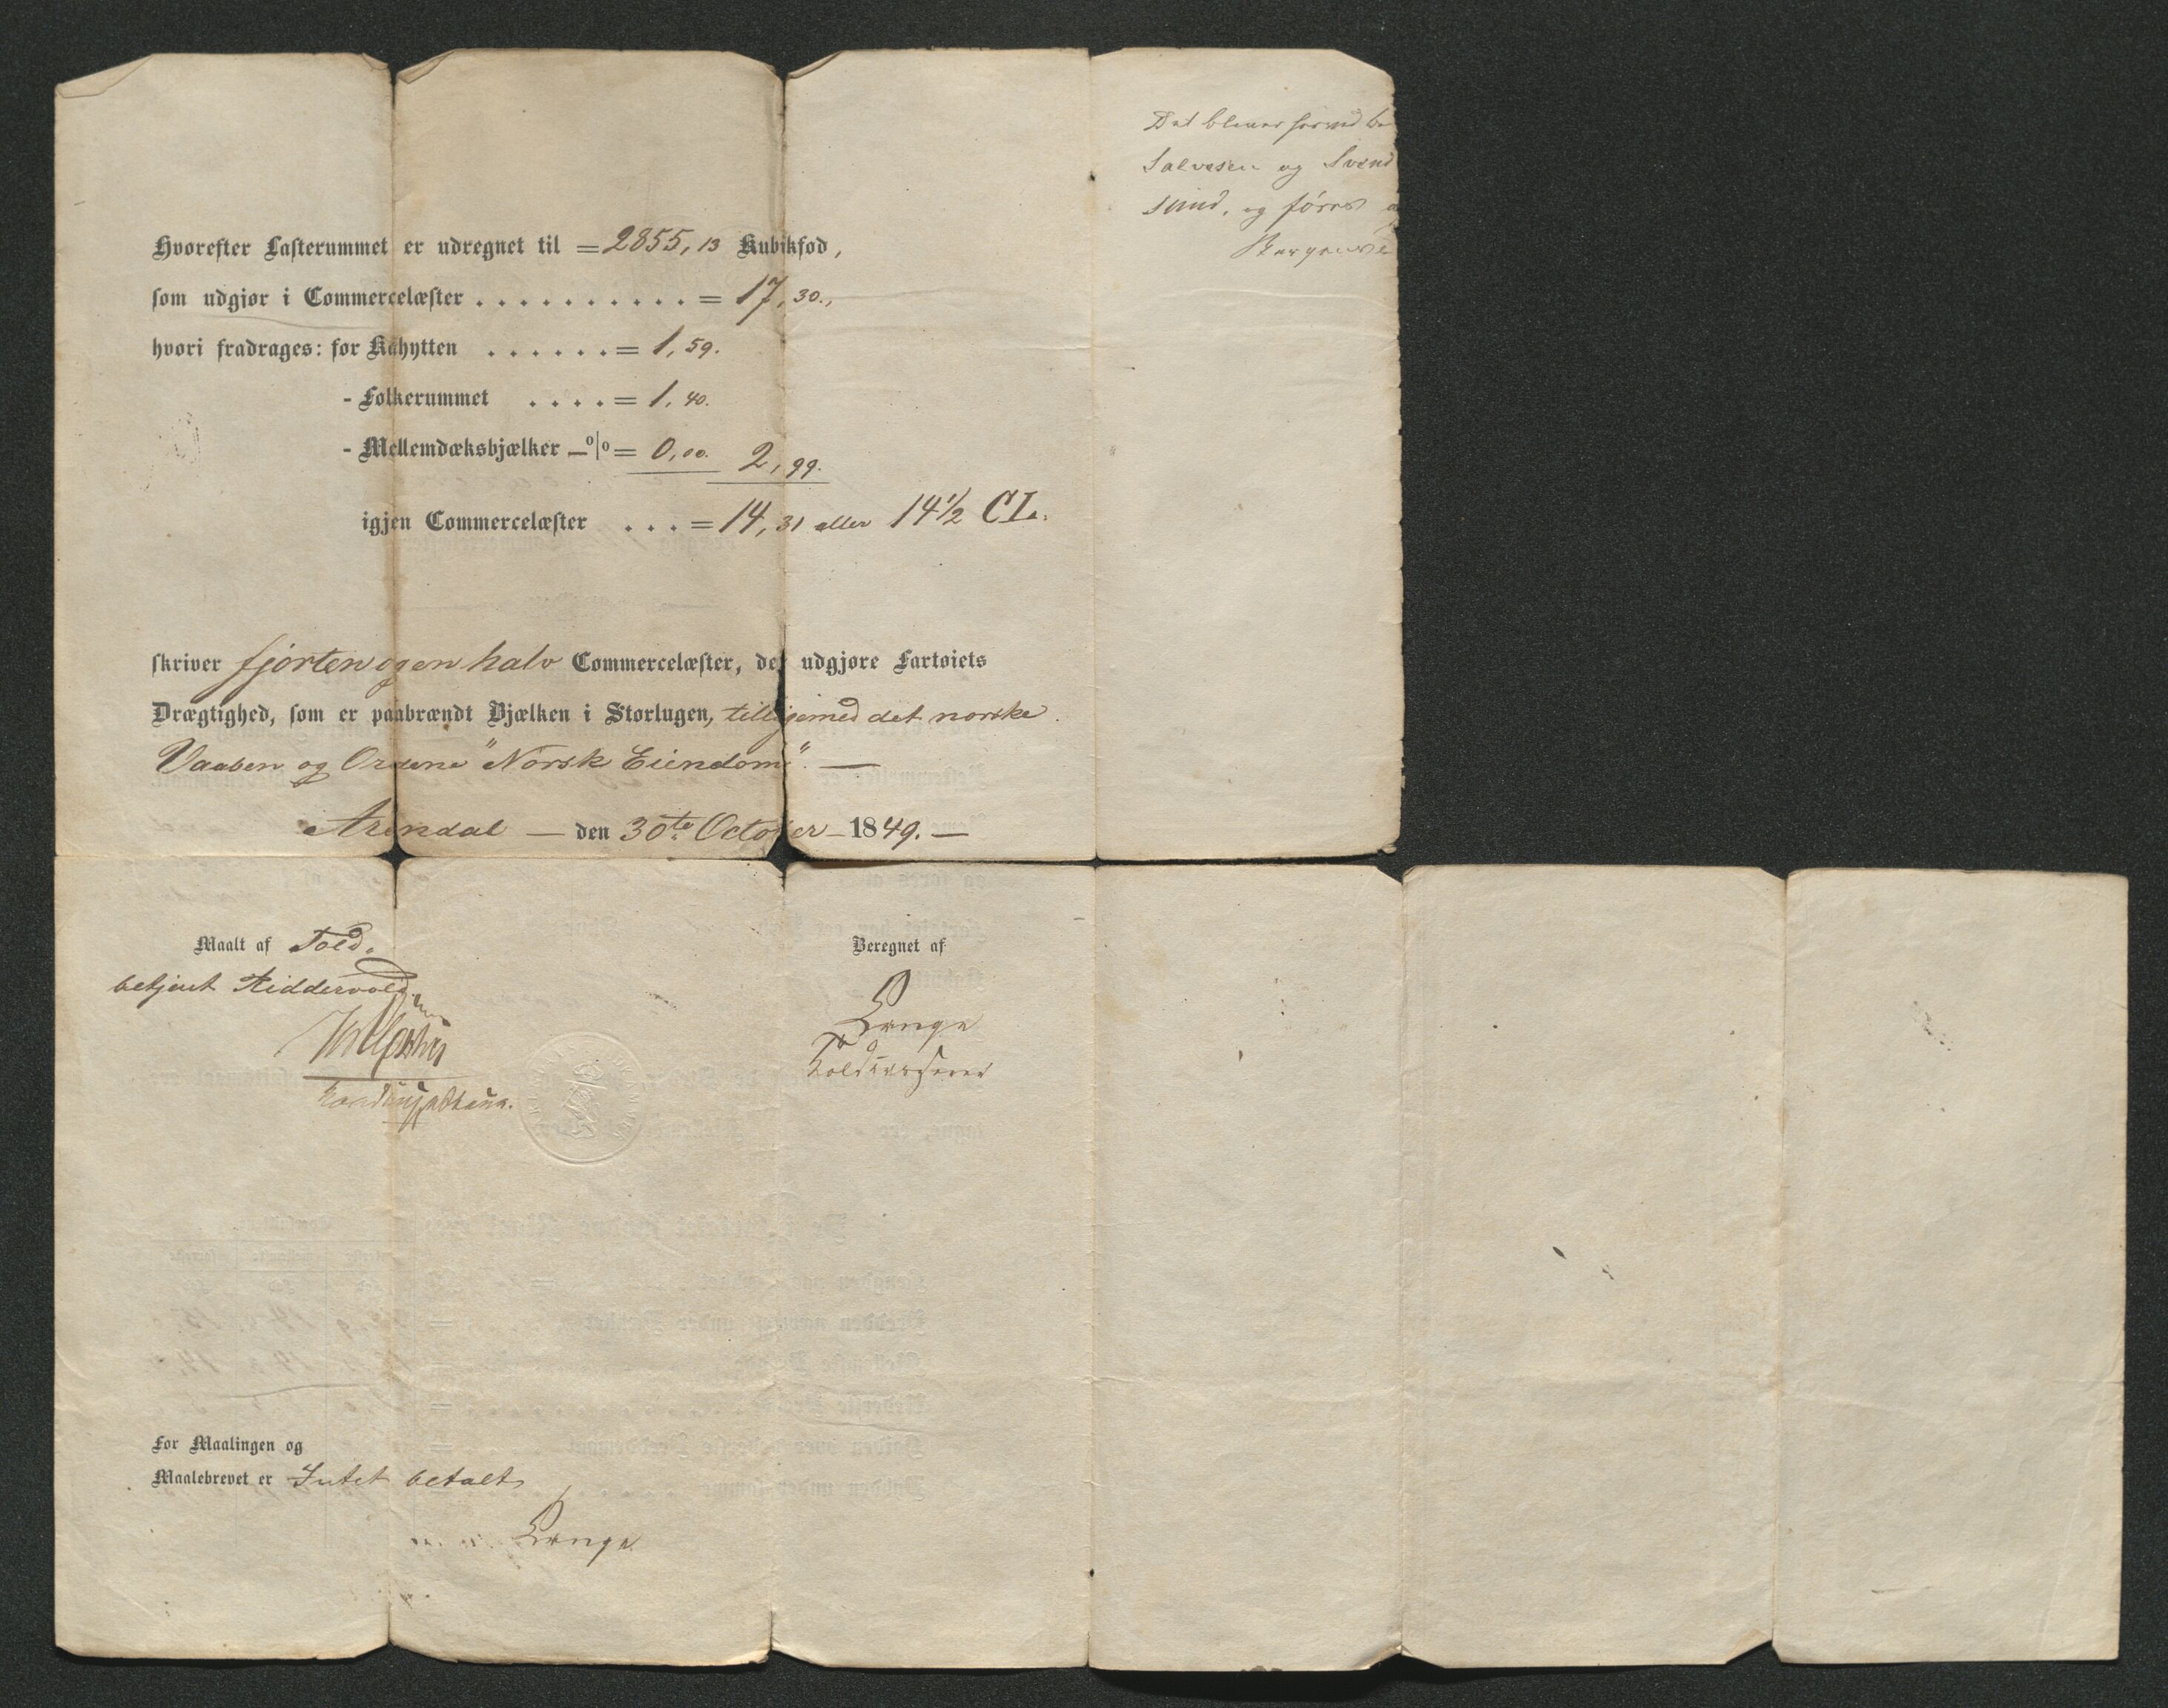 Hvorefter Lasterummet er udregnet til = 2855,13 Kubikfod,
som udgjør i Commercelæster . . . . . . . . . . . = 17,30.,
hvori fradrages: for Kahytten . . . . . . = 1,59.
- Folkerummet . . . . = 1,40.
- Mellemdæksbjælker — o|o = 0,00. 2,99.
igjen Commercelæster . . . = 14,31 eller 14 1/2 CL.
skriver fjorten og en halv Commercelæster, der udgjøre Fartøiets
Drægtighed, som er paabrændt Bjælken i Storlugen, tilligemed det norske
Vaaben og Ordene "Norsk Eiendom". —
Arendal — den 30te October — 1849. —
Maalt af Told-
betjent Riddervold
Beregnet af
Lange
Toldkasserer
For Maalingen og
Maalebrevet er Intet betalt
Lange
Salvesen og Svend
sund, og føres